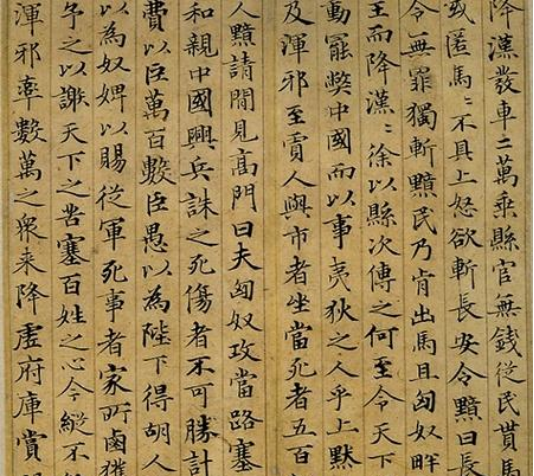 降漢發車二萬乘縣官無錢從民貰馬
或匿馬〻不具上怒欲斬長安令黯曰長
令無罪獨斬黯民乃肯出馬且匈奴畔
主而降漢〻徐以縣次傳之何至令天下
動罷弊中國而以事夷狄之人乎上默
及渾邪至賈人與市者坐當死者五百
人黯請閒見高門曰夫匈奴攻當路塞
和親中國興兵誅之死傷者不可勝計
費以巨萬百數臣愚以為陛下得胡人
以為奴婢以賜從軍死事者家所鹵獲
予之以謝天下之苦塞百姓之心今縱不
渾邪率數萬之衆来降虛府庫賞